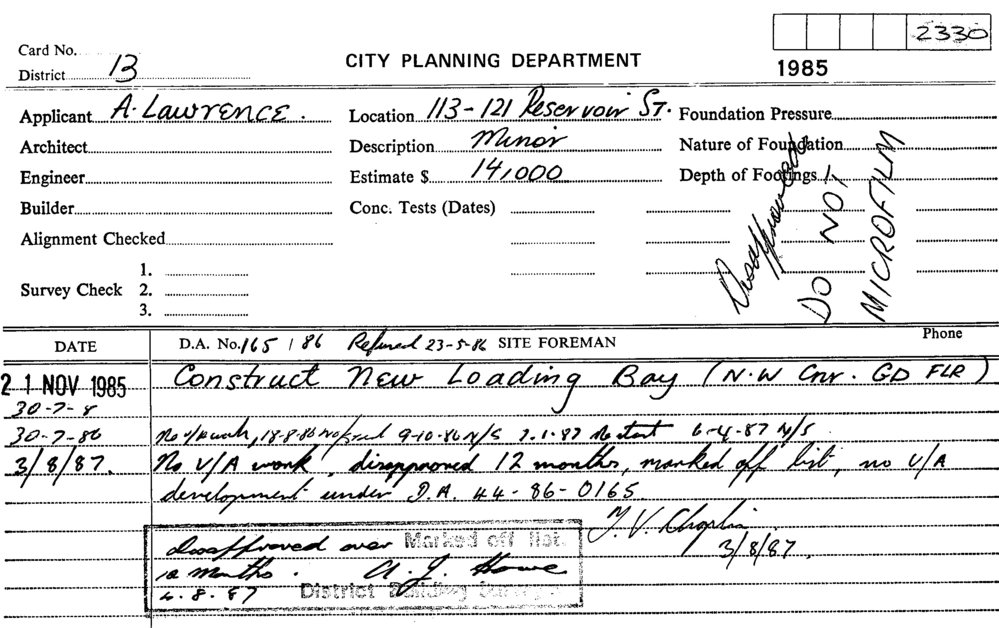 2330
Card No.
District 13
CITY PLANNING DEPARTMENT
1985
Applicant A. Lawrence.
Location 113-121 Reservoir St.
Foundation Pressure
Architect
Description Minor
Nature of Foundation
Engineer
Estimate $ 14,000
Depth of Footings
Builder
Conc. Tests (Dates)
Alignment Checked
Survey Check 1.
2.
3.
Disapproved
DO NOT
MICROFILM
DATE
D.A. No. 165 / 86 Refused 23-5-86 SITE FOREMAN
Phone
21 NOV 1985 Construct New Loading Bay (N.W Cnr. GD FLR)
30-7-8
30-7-86 No work, 18-8-86 9-10-86 N/S 7.1.87 No start 6-4-87 N/S
3/8/87. No V/A work, disapproved 12 months, marked off list, no V/A
development under D.A. 44-86-0165
3/8/87.
Disapproved over Marked off list.
12 months. A. J. Howe
4.8.87 District Building Surveyor